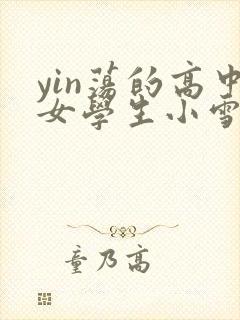 yin蕩的高中
女學生小雪
童乃高